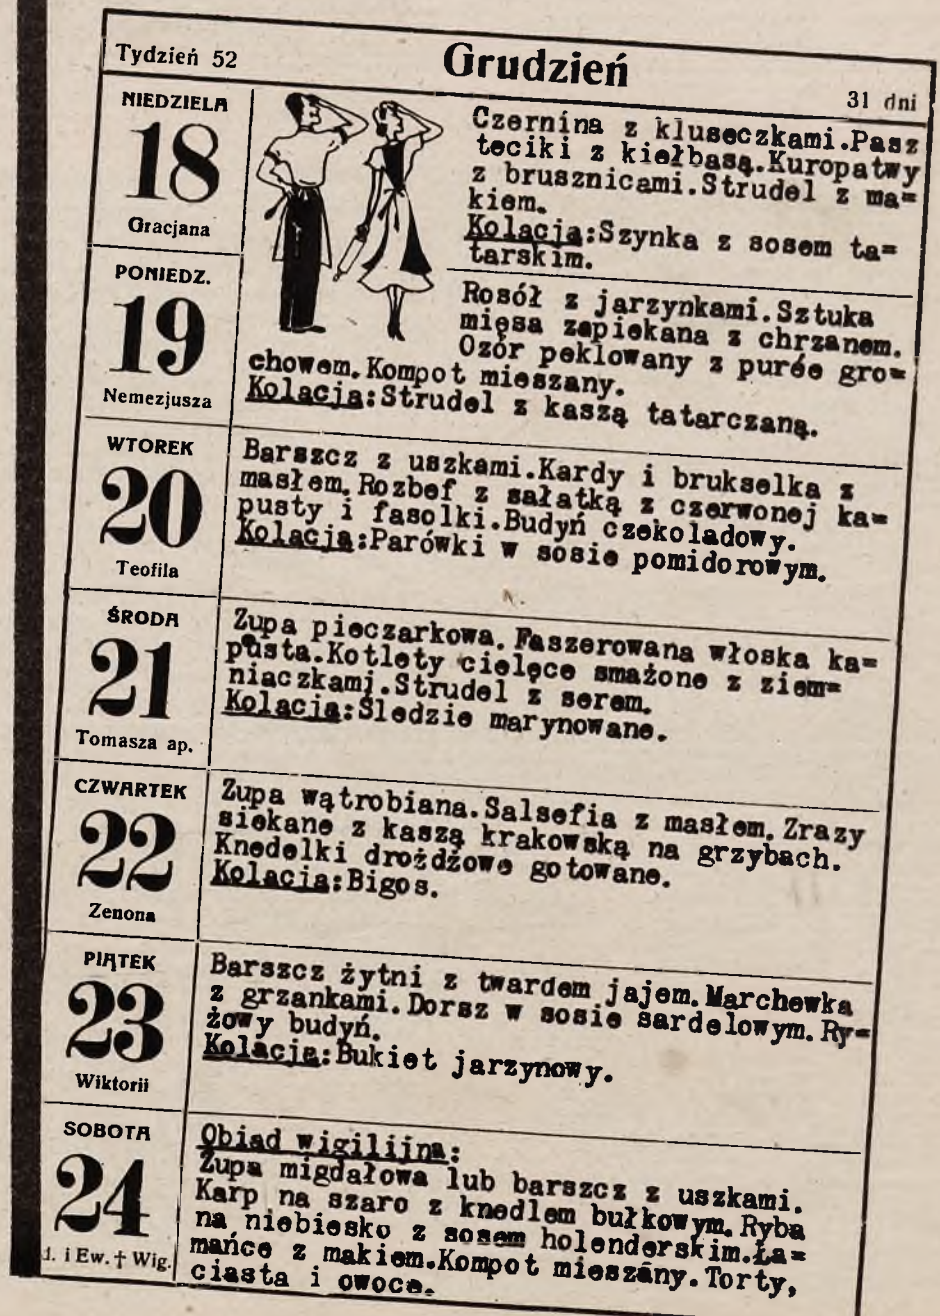 Tydzień 52
Grudzień
31 dni
NIEDZIELA
18
Gracjana
Czernina z kluseczkami.Pasz
teciki z kiełbasą.Kuropatwy
z brusznicami.Strudel z ma=
kiem.
Kolacja:Szynka z sosem ta=
tarskim.
PONIEDZ.
19
Nemezjusza
Rosół z jarzynkami.Sztuka
mięsa zapiekana z chrzanem.
Ozór peklowany z purée gro=
chowem.Kompot mieszany.
Kolacja:Strudel z kaszą tatarczaną.
WTOREK
20
Teofila
Barszcz z uszkami.Kardy i brukselka z
masłem.Rozbef z sałatką z czerwonej ka=
pusty i fasolki.Budyń czekoladowy.
Kolacja:Parówki w sosie pomidorowym.
ŚRODA
21
Tomasza ap.
Zupa pieczarkowa.Faszerowana włoska ka=
pusta.Kotlety cielęce smażone z ziem=
niaczkami.Strudel z serem.
Kolacja:Śledzie marynowane.
CZWARTEK
22
Zenona
Zupa wątrobiana.Salsefia z masłem.Zrazy
siekane z kaszą krakowską na grzybach.
Knedelki drożdżowe gotowane.
Kolacja:Bigos.
PIĄTEK
23
Wiktorii
Barszcz żytni z twardem jajem.Marchewka
z grzankami.Dorsz w sosie sardelowym.Ry=
żowy budyń.
Kolacja:Bukiet jarzynowy.
SOBOTA
24
i Ew. † Wig.
Obiad wigilijna:
Zupa migdałowa lub barszcz z uszkami.
Karp na szaro z knedlem bułkowym.Ryba
na niebiesko z sosem holenderskim.Ła=
mańce z makiem.Kompot mieszany.Torty,
ciasta i owoce.